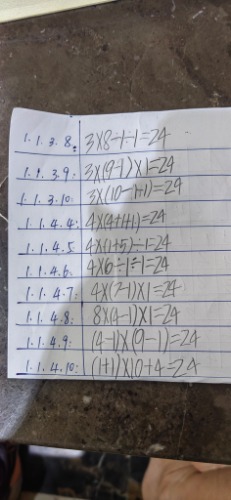 1.1.3.8: 3×8÷1÷1=24
1.1.3.9: 3×(9-1)×1=24
1.1.3.10: 3×(10-1-1)=24
1.1.4.4: 4×(4+1+1)=24
1.1.4.5 4×(1+5)÷1=24
1.1.4.6: 4×6÷1÷1=24
1.1.4.7: 4×(7-1)×1=24
1.1.4.8: 8×(4-1)×1=24
1.1.4.9: (4-1)×(9-1)=24
1.1.4.10: (1+1)×10+4=24